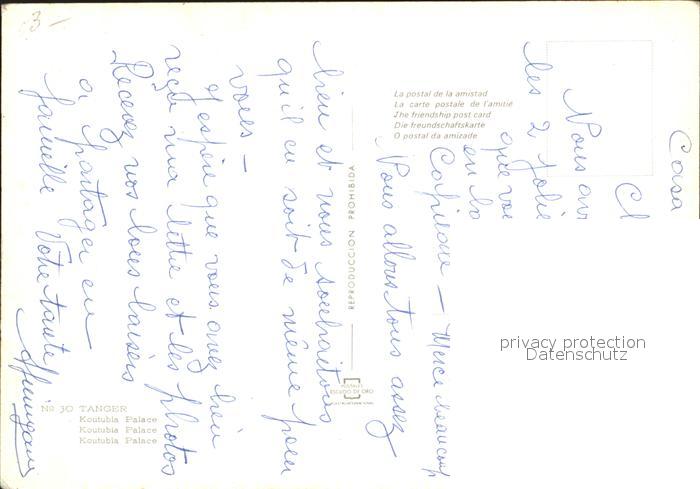 3-
Casa
Cl
Nous av
les 2 jolie
que vou
en la
Capieque - Merci beaucoup
Nous allons tous assez
bien et nous souhaitons
qu'il en soit de même pour
vous -
J'espère que vous avez bien
reçu ma lettre et les photos
Recevez nos bons baisers
a partager en
famille Votre tante
La postal de la amistad
La carte postale de l'amitié
The friendship post card
Die freundschaftskarte
O postal da amizade
REPRODUCCION PROHIBIDA
POSTALES
ESCUDO DE ORO
Nº 30 TANGER
Koutubia Palace
Koutubia Palace
Koutubia Palace
privacy protection
Datenschutz